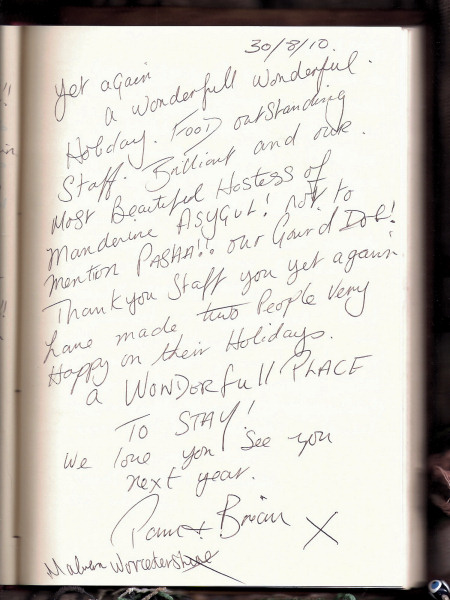 30/8/10.
Yet again
a wonderfull wonderful.
Holiday. FOOD outstanding
Staff. Brilliant and our.
Most Beautiful Hostess of
Manderine AsyGUL! not to
mention PASHA!! our Gourd DOG!
Thankyou Staff you yet again
have made two People very
Happy on their Holidays.
a WONDerfull PLACE
TO STAY!
We love you! See you
next year.
Pam + Brian X
Malvern Worcestershire